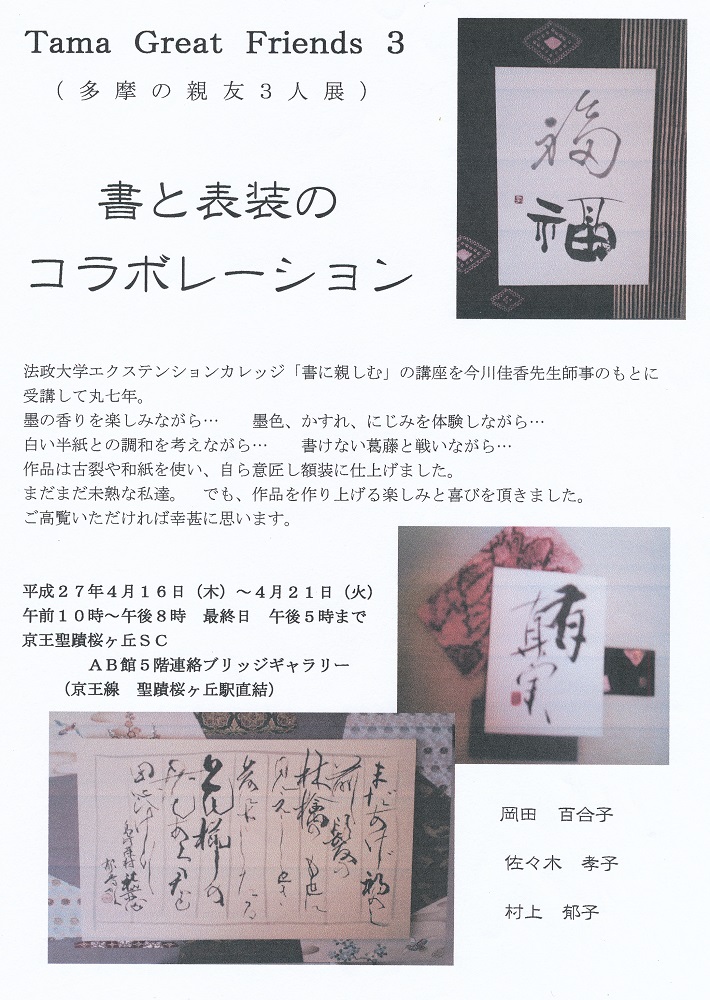 Tama Great Friends 3
（多摩の親友３人展）
書と表装の
コラボレーション
福
福
法政大学エクステンションカレッジ「書に親しむ」の講座を今川佳香先生師事のもとに
受講して丸七年。
墨の香りを楽しみながら…　　墨色、かすれ、にじみを体験しながら…
白い半紙との調和を考えながら…　　書けない葛藤と戦いながら…
作品は古裂や和紙を使い、自ら意匠し額装に仕上げました。
まだまだ未熟な私達。　でも、作品を作り上げる楽しみと喜びを頂きました。
ご高覧いただければ幸甚に思います。
平成２７年４月１６日（木）～４月２１日（火）
午前１０時～午後８時　最終日　午後５時まで
京王聖蹟桜ヶ丘ＳＣ
ＡＢ館５階連絡ブリッジギャラリー
（京王線　聖蹟桜ヶ丘駅直結）
有
真実
まだあげ初めし
前髪の
林檎のもとに
見えしとき
前にさしたる
花櫛の
花ある君と
思ひけり
岡田　百合子
佐々木　孝子
村上　郁子